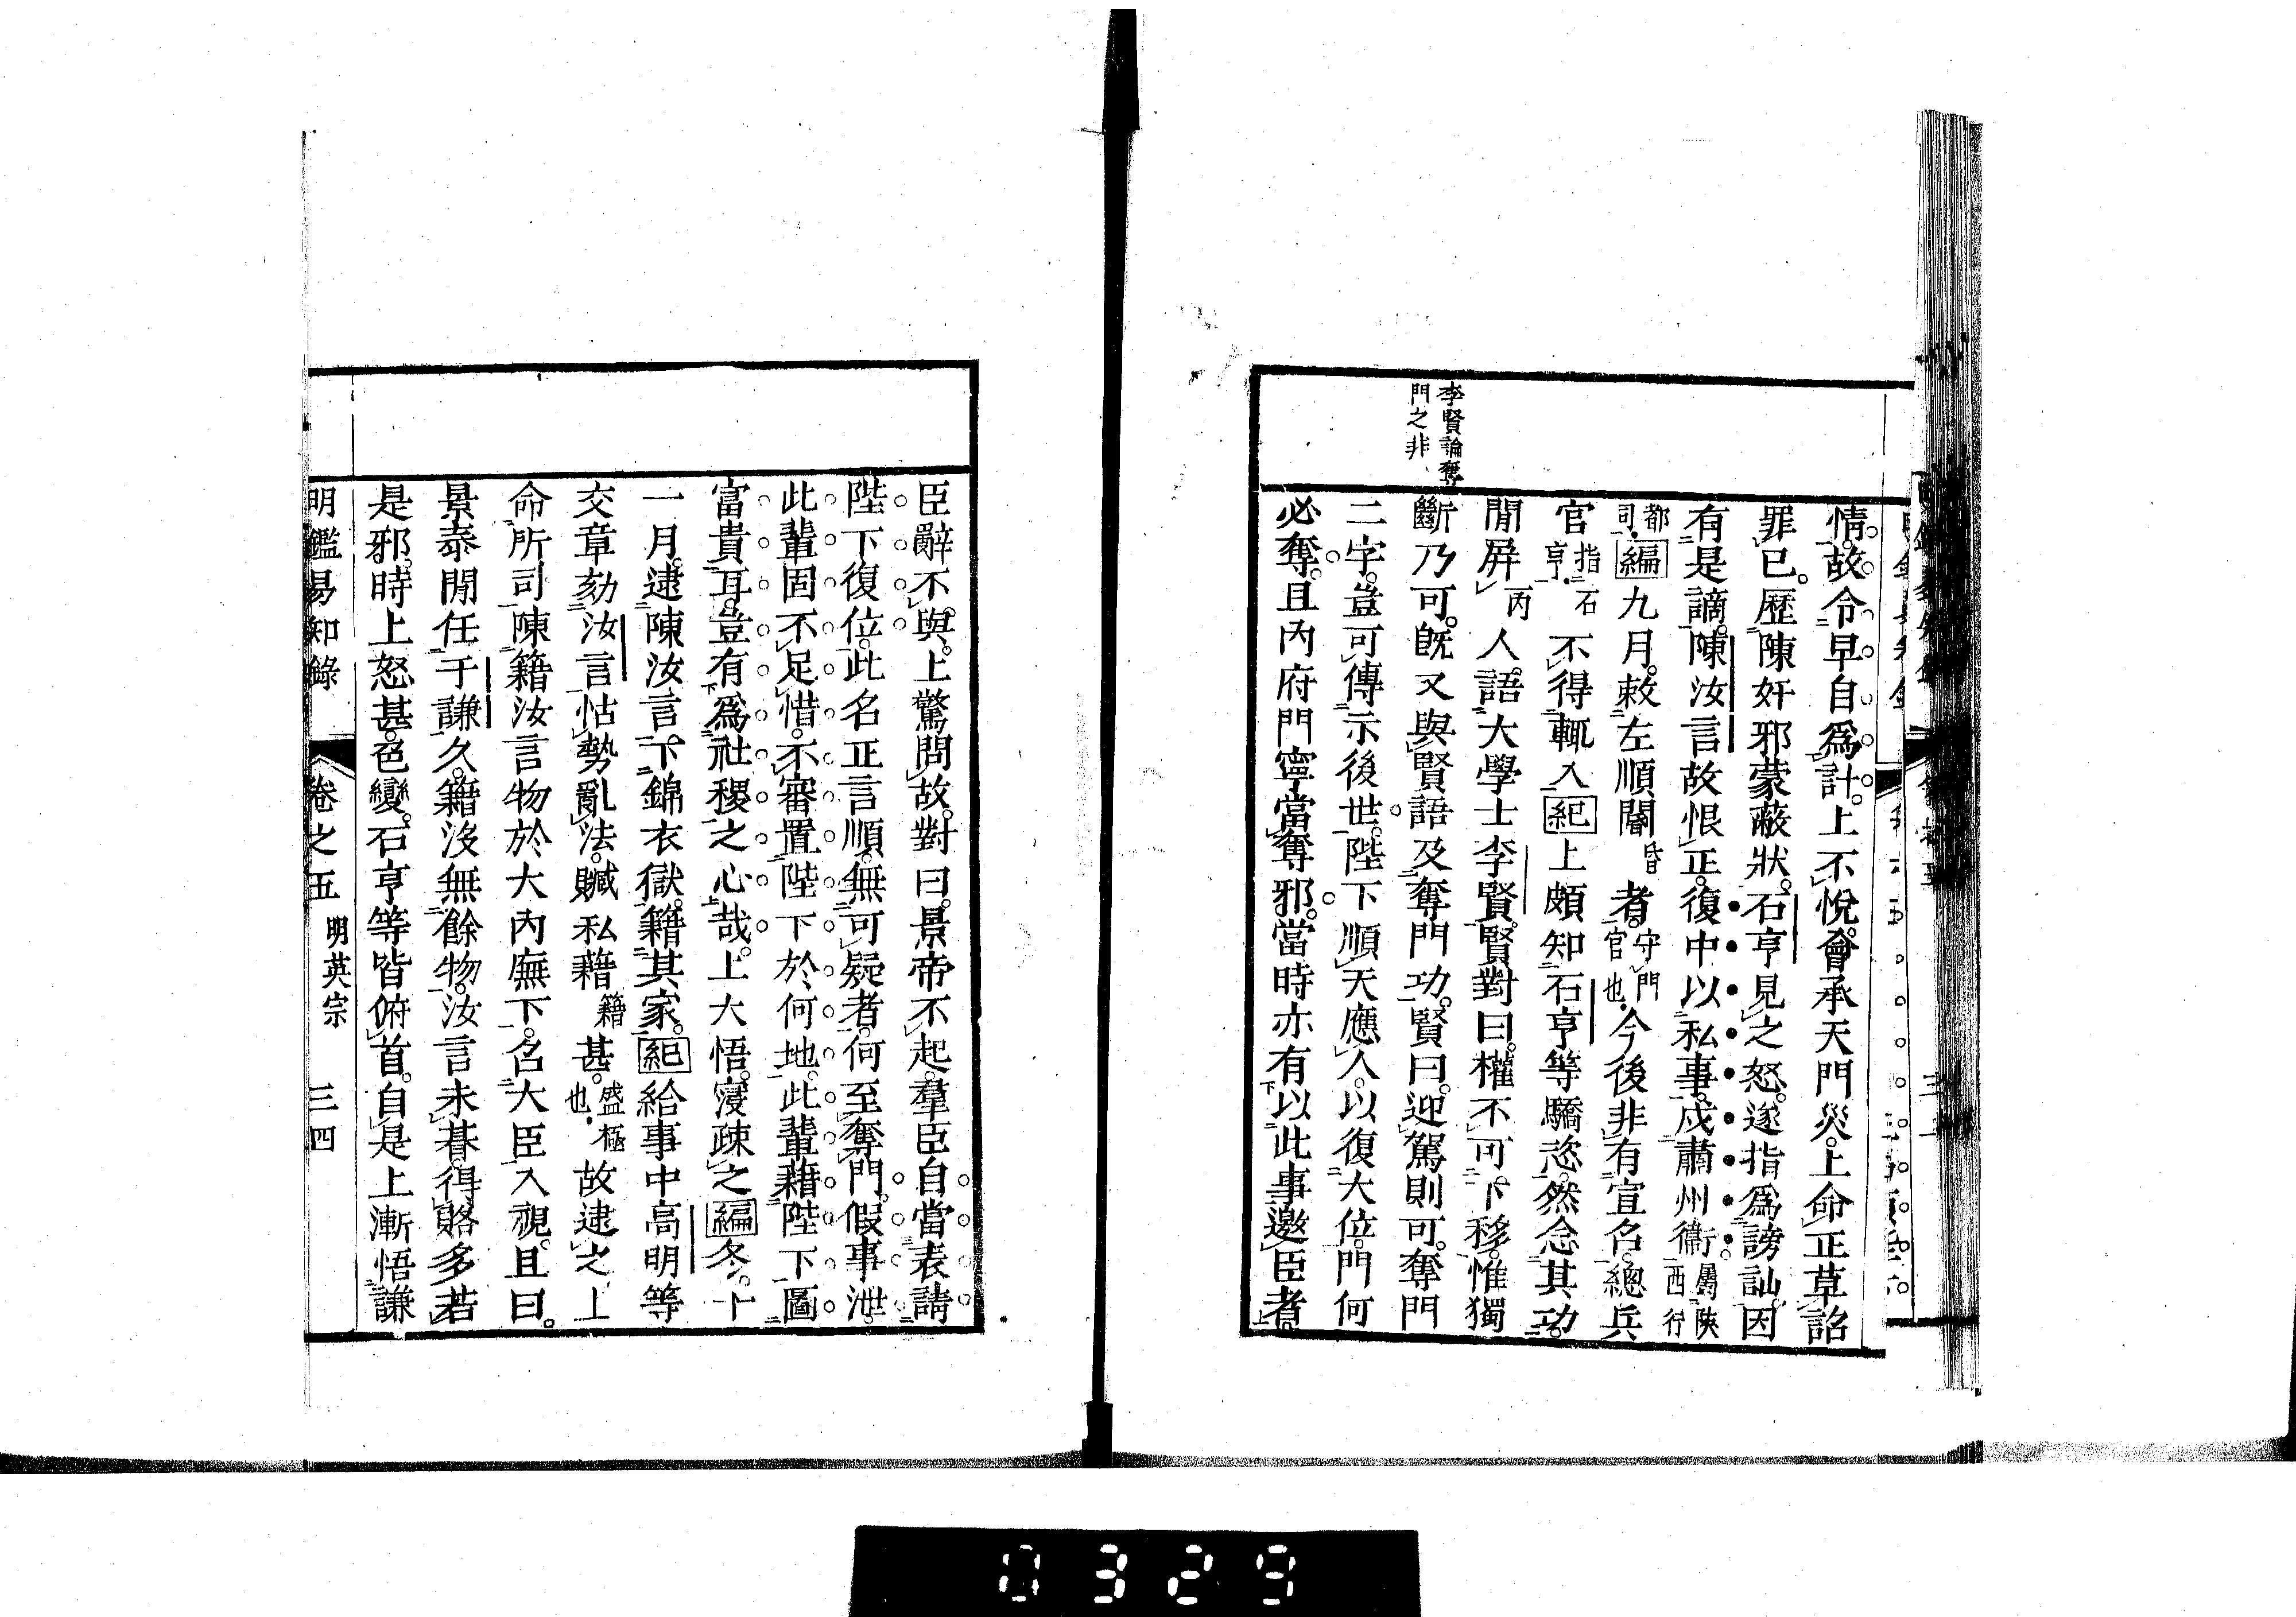 李賢論奪
門之非
情。故令早自爲計。上不悅。會承天門災。上命正草詔
罪已。歷陳奸邪蒙蔽狀。石亨見之怒。遂指爲謗訕。因
有是謫。陳汝言故恨正。復中以私事。戍肅州衞。屬陝西行
都司。編九月。敕左順閽昏者。守門官也。今後非有宣名。總兵
官指石亨。不得輒入紀上頗知石亨等驕恣。然念其功。
閒屏丙人。語大學士李賢。賢對曰。權不可下移。惟獨
斷乃可。旣又與賢語及奪門功。賢曰。迎駕則可。奪門
二字。豈可傳示後世。陛下順天應人。以復大位。門何
必奪。且內府門寧當奪邪。當時亦有以此事邀臣者。
臣辭不與。上驚問故。對曰。景帝不起。羣臣自當表請
陛下復位。此名正言順。無可疑者。何至奪門。假事泄。
此輩固不足惜。不審置陛下於何地。此輩藉陛下圖
富貴耳。豈有爲社稷之心哉。上大悟。寖疎之編冬。十
一月。逮陳汝言。下錦衣獄。籍其家。紀給事中高明等
交章劾汝言怙勢亂法。贓私藉籍甚。盛極也。故逮之上
命所司陳籍汝言物於大內廡下。召大臣入視。且曰。
景泰閒任于謙久。籍沒無餘物。汝言未朞。得賂多若
是邪。時上怒甚。色變。石亨等皆俯首。自是上漸悟謙
明鑑易知錄 卷之五 明英宗 三四
0329